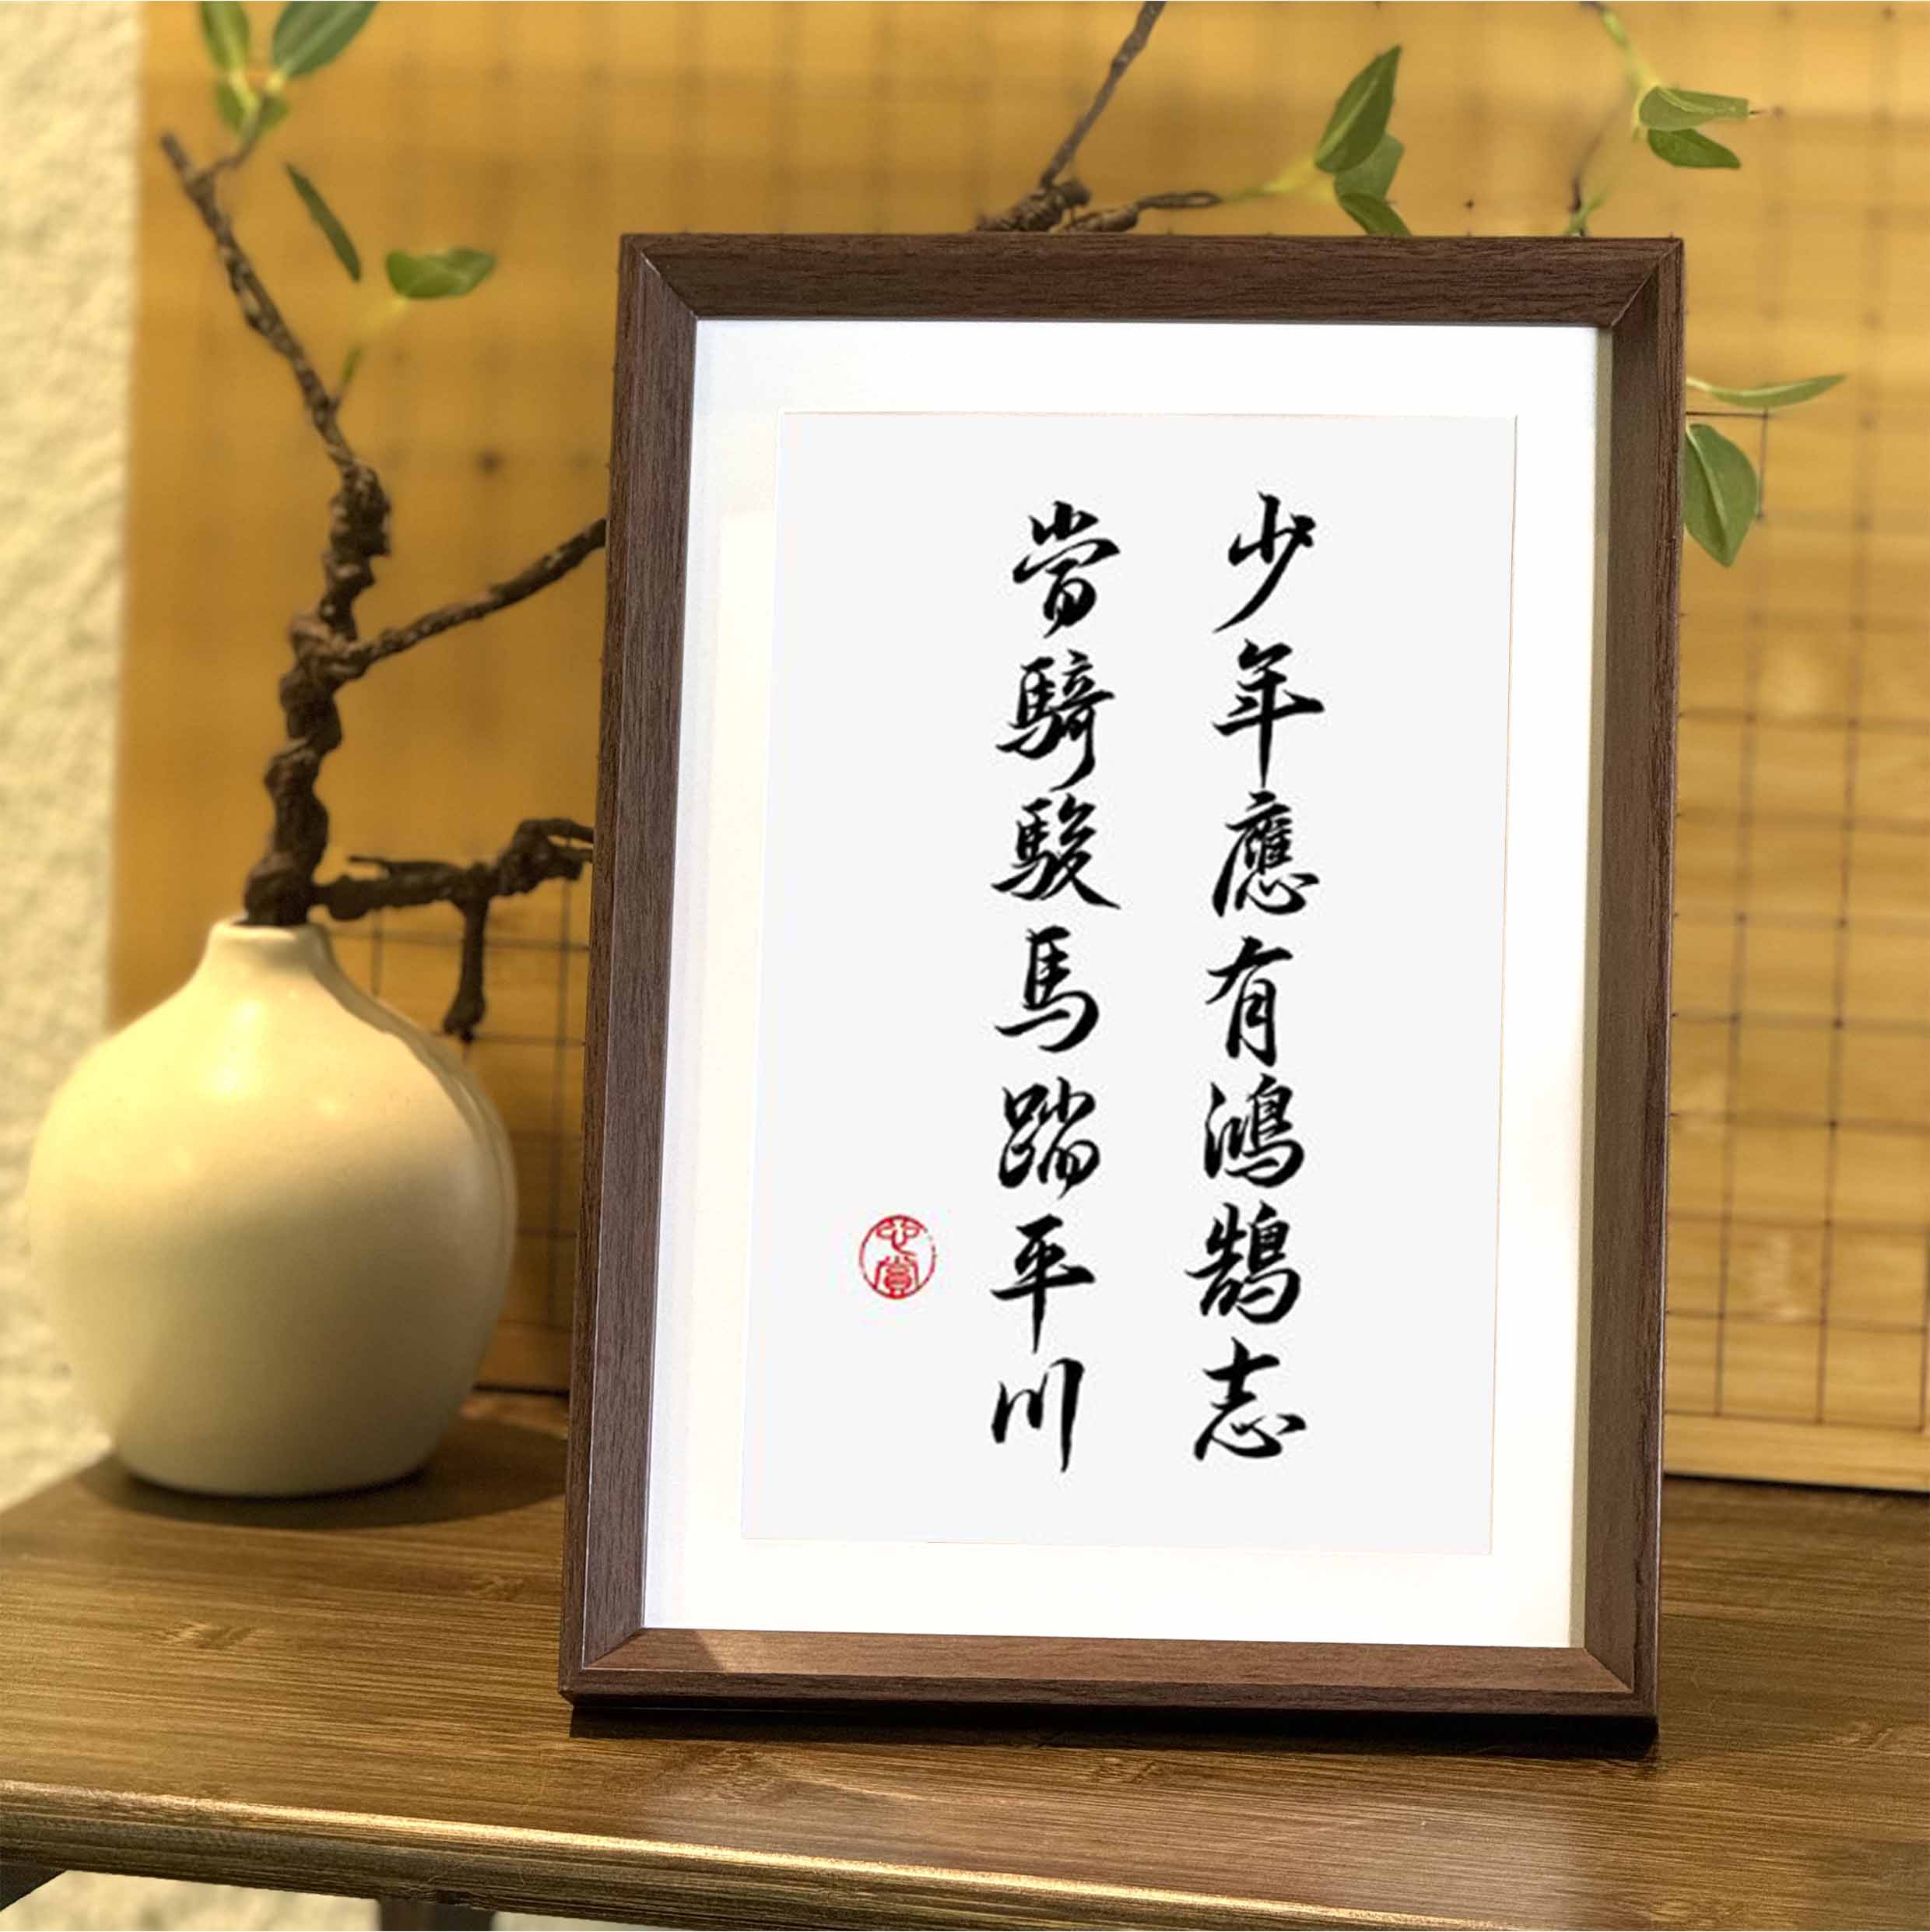 少年應有鴻鵠志
當騎駿馬踏平川
心賞